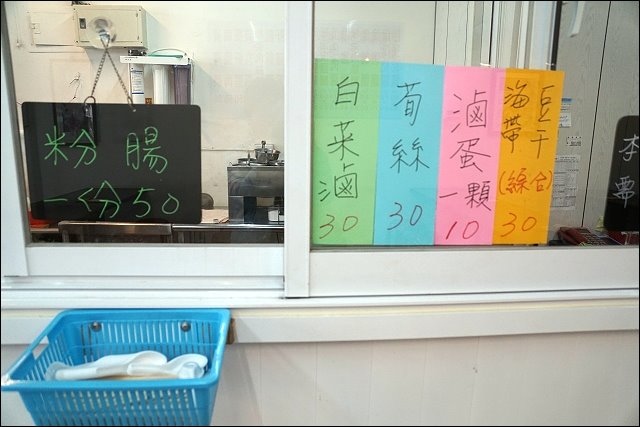 粉腸
一份50
白菜滷
30
荀絲
30
滷蛋
一顆
10
豆干
海帶
(綜合)
30